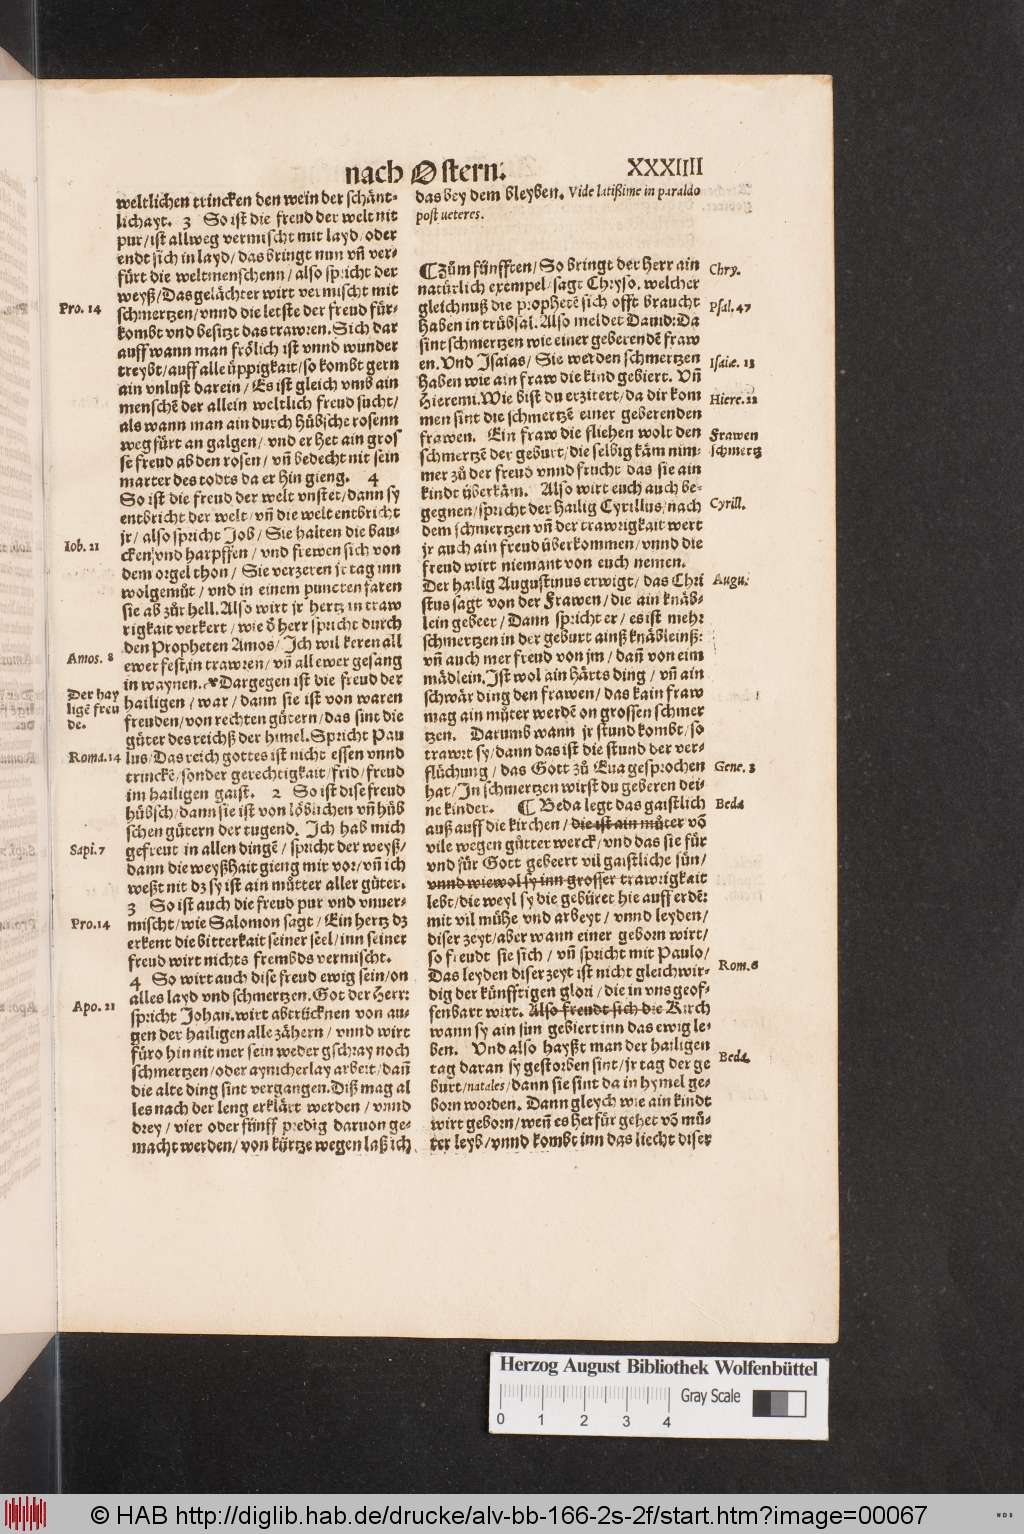 nach Ostern.
XXXIIII
weltlichen trincken den wein der schänt-
lichayt. 3 So ist die freud der welt nit
pur/ist allweg vermischt mit layd/oder
endt sich in layd/das bringt nun vñ ver-
fürt die weltmenschenn/also spricht der
weyß/Das gelächter wirt vermischt mit
schmertzen/vnnd die letste der freud für-
kombt vnd besitzt das trawren. Sich dar
auff wann man frölich ist vnnd wunder
treybt/auff alle üppigkait/so kombt gern
ain vnlust darein/Es ist gleich vmb ain
menschẽ der allein weltlich freud sucht/
als wann man ain durch hübsche rosenn
weg fürt an galgen/vnd er het ain gros
se freud ab den rosen/vñ bedecht nit sein
marter des todts da er hin gieng. 4
So ist die freud der welt vnstet/dann sy
entbricht der welt/vñ die welt entbricht
jr/also spricht Job/Sie halten die bau-
cken vnd harpffen/vnd frewen sich von
dem orgel thon/Sie verzeren jr tag inn
wolgemůt/vnd in einem puncten faren
sie ab zůr hell. Also wirt jr hertz in traw
rigkait verkert/wie ð herr spricht durch
den Propheten Amos/Ich wil keren all
ewer fest, in trawren/vñ all ewer gesang
in waynen. Dargegen ist die freud der
hailigen/war/dann sie ist von waren
freuden/von rechten gütern/das sint die
güter des reichß der himel. Spricht Pau
lus/Das reich gottes ist nicht essen vnnd
trinckẽ/sonder gerechtigkait/frid/freud
im hailigen gaist. 2 So ist dise freud
hübsch/dann sie ist von löblichen vñ hüb
schen gütern der tugend. Ich hab mich
gefreut in allen dingẽ/spricht der weyß/
dann die weyßhait gieng mir vor/vñ ich
weßt nit dz sy ist ain můtter aller güter.
3 So ist auch die freud pur vnd vnuer-
mischt/wie Salomon sagt/Ein hertz dz
erkent die bitterkait seiner seel/inn seiner
freud wirt nichts frembds vermischt.
4 So wirt auch dise freud ewig sein/on
alles layd vnd schmertzen. Got der Herr:
spricht Johan. wirt abtrücknen von au-
gen der hailigen alle zähern/vnnd wirt
füro hin nit mer sein weder gschray noch
schmertzen/oder aynicherlay arbeit/dañ
die alte ding sint vergangen. Diß mag al
les nach der leng erklärt werden/vnnd
drey/vier oder fünff predig daruon ge-
macht werden/von kürtze wegen laß ich
Pro. 14
Iob. 21
Amos. 8
Der hay
ligẽ freu
de.
Roma. 14
Sapi. 7
Pro. 14
Apo. 21
das bey dem bleyben. Vide latißime in paraldo
post ueteres.
¶ Zům fünfften/So bringt der Herr ain
natürlich exempel/sagt Chryso. welcher
gleichnuß die prophetẽ sich offt braucht
haben in trübsal. Also meldet Dauid: Da
sint schmertzen wie einer geberendẽ fraw
en. Vnd Isaias/Sie werden schmertzen
haben wie ain fraw die kind gebiert. Vñ
Hieremi. Wie bist du erzitert/da dir kom
men sint die schmertzẽ einer geberenden
frawen. Ein fraw die fliehen wolt den
schmertzẽ der geburt/die selbig käm nim-
mer zů der freud vnnd frucht das sie ain
kindt überkäm. Also wirt euch auch be-
gegnen/spricht der hailig Cyrillus/nach
dem schmertzen vñ der trawrigkait wert
jr auch ain freud überkommen/vnnd die
freud wirt niemant von euch nemen.
Der hailig Augustinus erwigt/das Chri
stus sagt von der Frawen/die ain knäb-
lein gebeer/Dann spricht er/es ist mehr
schmertzen in der geburt ainß knäbleinß:
vñ auch mer freud von jm/dañ von eim
mädlein. Ist wol ain härts ding/vñ ain
schwär ding den frawen/das kain fraw
mag ain můter werdẽ on grossen schmer
tzen. Darumb wann jr stund kombt/so
trawrt sy/dann das ist die stund der ver-
flůchung/das Gott zů Eua gesprochen
hat/In schmertzen wirst du geberen dei-
ne kinder. ¶ Beda legt das gaistlich
auß auff die kirchen/die ist ain můter võ
vile wegen gůtter werck/vnd das sie für
vnd für Gott gebeert vil gaistliche sün/
vnnd wiewol sy inn grosser trawrigkait
lebt/die weyl sy die gebüret hie auff erdẽ:
mit vil mühe vnd arbeyt/vnnd leyden/
diser zeyt/aber wann einer geborn wirt/
so freudt sie sich/vñ spricht mit Paulo/
Das leyden diser zeyt ist nicht gleichwir-
dig der künfftigen glori/die in vns geof-
fenbart wirt. Also freudt sich die Kirch
wann sy ain sun gebiert inn das ewig le-
ben. Vnd also hayßt man der hailigen
tag daran sy gestorben sint/jr tag der ge
burt/natales/dann sie sint da in hymel ge-
born worden. Dann gleych wie ain kindt
wirt geborn/weñ es herfür gehet võ mů-
ter leyb/vnnd kombt inn das liecht diser
Chry.
Psal. 47
Isaiæ. 13
Hiere. 22
Frawen
schmertz
Cyrill.
Augu.
Gene. 3
Beda
Rom. 8
Beda.
Herzog August Bibliothek Wolfenbüttel
0 1 2 3 4
Gray Scale
© HAB http://diglib.hab.de/drucke/alv-bb-166-2s-2f/start.htm?image=00067